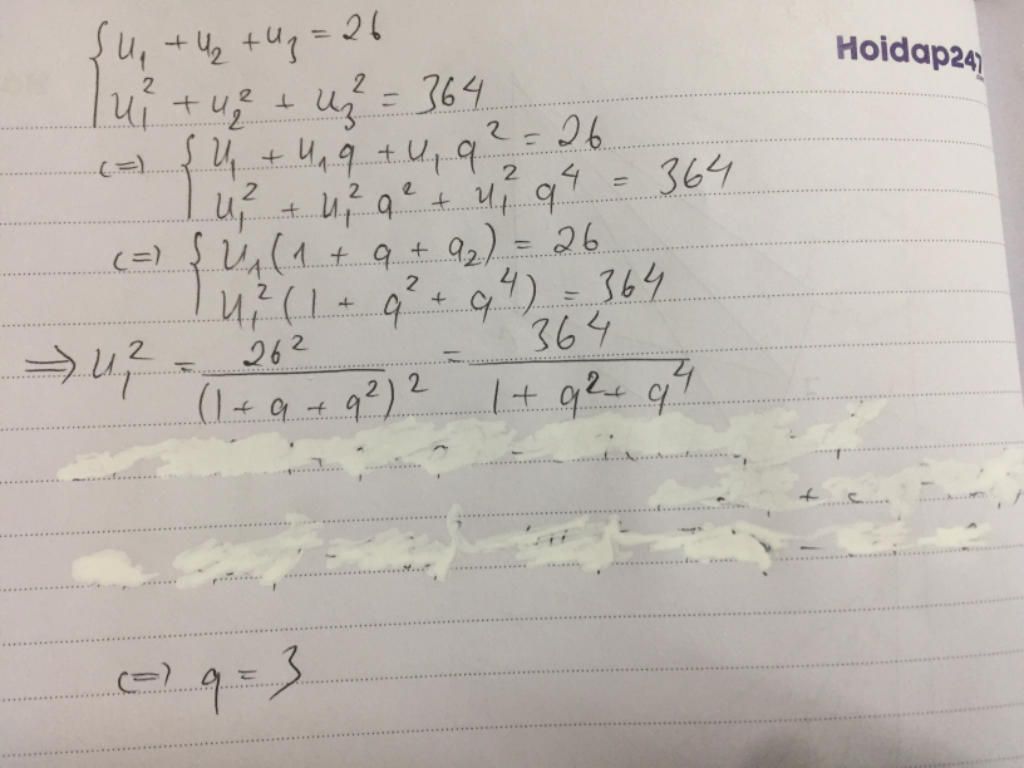 Hoidap247
{ u₁ + u₂ + u₃ = 26
u₁² + u₂² + u₃² = 364
<=> { u₁ + u₁q + u₁q² = 26
u₁² + u₁²q² + u₁²q⁴ = 364
<=> { u₁(1 + q + q₂) = 26
u₁²(1 + q² + q⁴) = 364
=> u₁² = 26² / (1 + q + q²)² = 364 / 1 + q² + q⁴
<=> q = 3